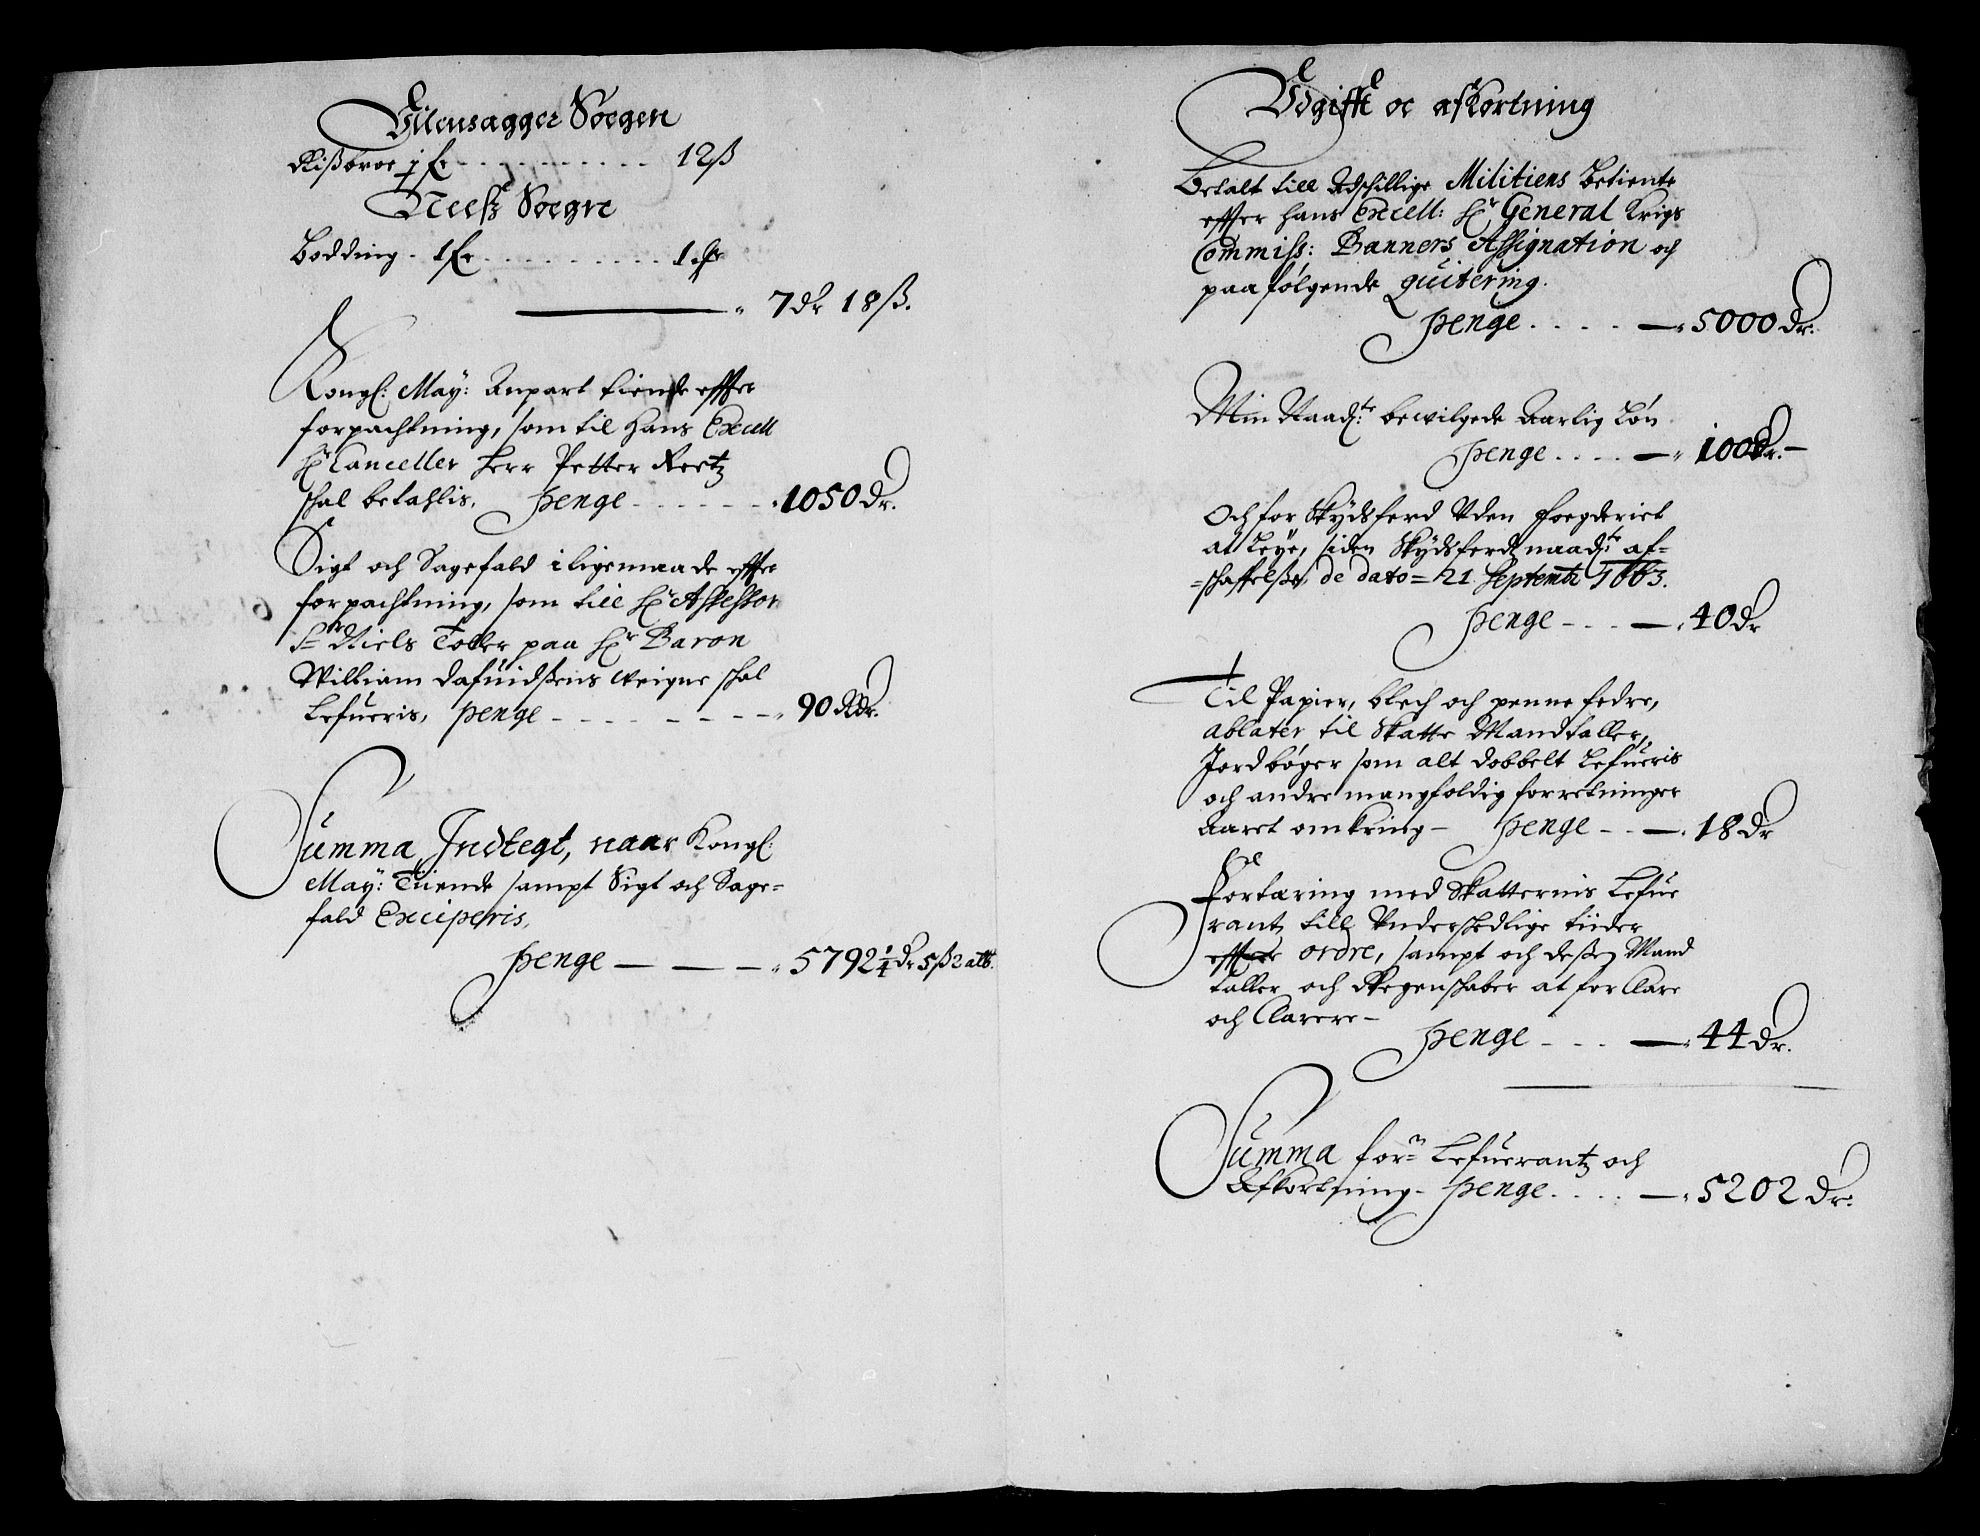 Gilensagger Soegen
Rißbroe j fr - - - - - - - - - - 12ß
Neeß Soegne
Bodding - 1 fr - - - - - - - - - - 1 ch
— " 7 dr 18 ß.
Kongl: May: Anpart tiende effter
forpachtning, som til hans Excell
Hr Canceller Herr Petter Reetz
schal betahlis, penge - - - - - - " 1050 Dr.
Sigt och Sagefald i ligemaade effter
forpachtning, som till Hr Assessor
Sr Niels Toller paa Hr Baron
William Dafuidßens weigne schal
Lefueris, penge - - - - - - - - - " 90 Rdr.
Summa Indtegt, naar Kongl:
May: Tiiende sampt Sigt och Sage=
fald Exciperis,
penge — — — " 5792 1/4 dr 5ß 2 alb.
Udgifft oc afkortning
Betalt till Adschillige Militiens Betiente
effter hans Excell: Hr General Krigs
Commiss: Banners Assignation och
paafølgende quitering.
penge . . . . — " 5000 Dr.
Min Naadste bewilgede Aarlig Løn
penge . . . . — " 100 Dr. —
Och for Skydsferd Uden Foegderiet
at Leye, siden Skydsferdz naadste af=
=schaffelße, de dato = 21 Septembr 1663.
penge - - - — " 40 Dr
Til Papier, blech och penne fedre,
ablater til Skatte Mandtaller,
Jordbøger som alt dobbelt Lefueris
och andre mangfoldig forretninger
Aaret omkring — penge - - — " 18 Dr
Fortæring med Skatternis Lefue
rantz till Underschedlige tiider
effter ordre, sampt och deßen Mand
taller och Regenschaber at forClare
och Clarere —
penge - - - — " 44 Dr.
Summa forn Lefuerantz och
Afkortning - penge . . . . — " 5202 Dr.